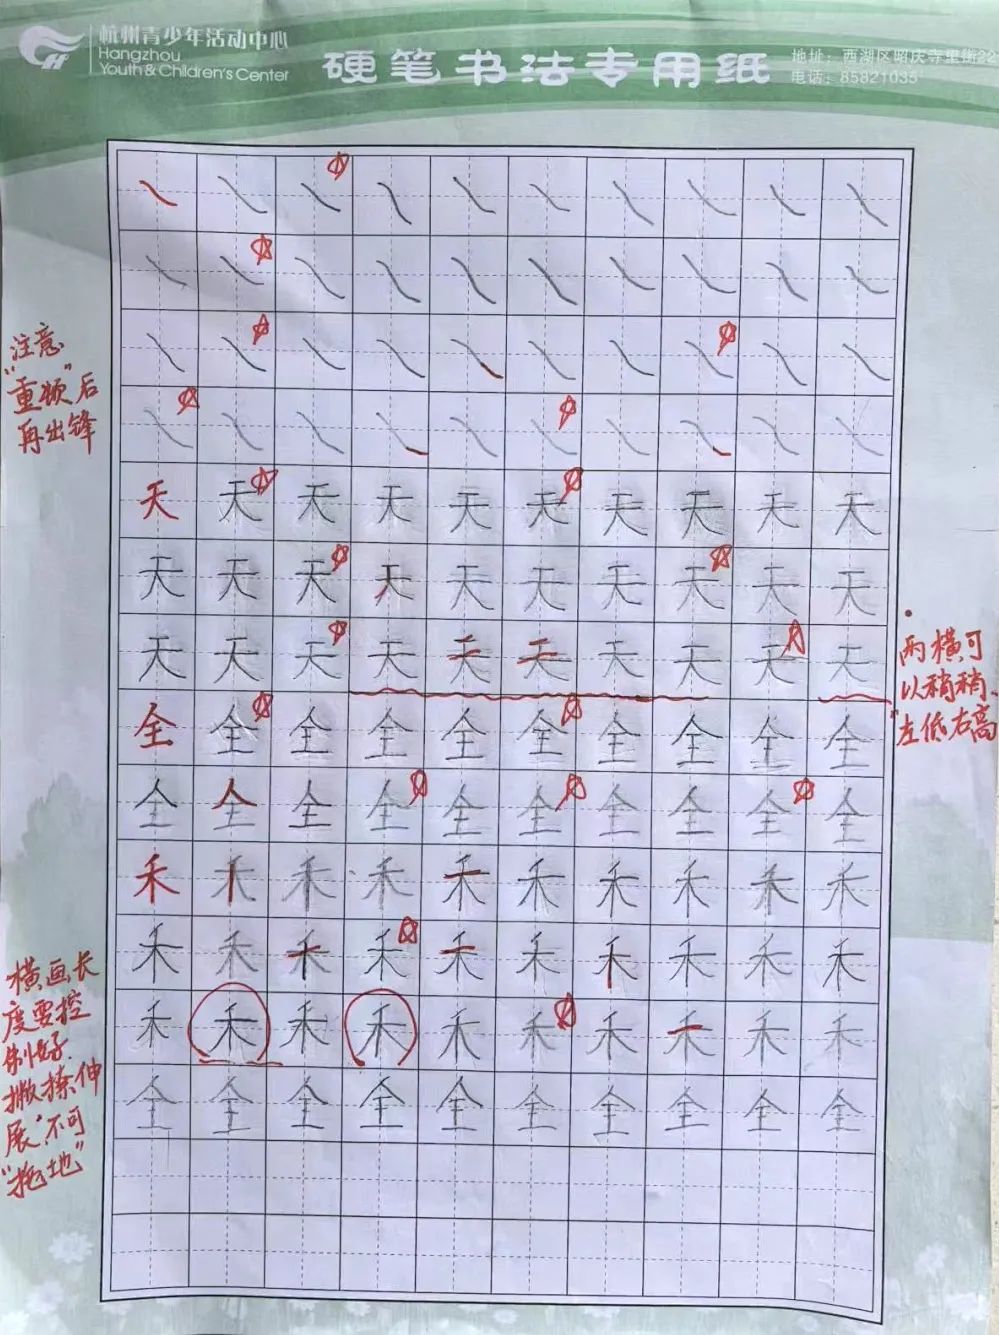 杭州青少年活动中心
Hangzhou
Youth & Children's Center
硬笔书法专用纸
地址：西湖区昭庆寺里街22
电话：85821035
注意
"重顿"后
再出锋
天天天天天天天天天天
天天天天天天天天天天
天天天天天天天天天天
两横可
以稍稍
"左低右高
全全全全全全全全全全
全全全全全全全全全全
禾禾禾禾禾禾禾禾禾禾
禾禾禾禾禾禾禾禾禾禾
禾禾禾禾禾禾禾禾禾禾
全全全全全全全全全全
横画长
度要控
制好.
撇捺伸
展"不可
"拖地"